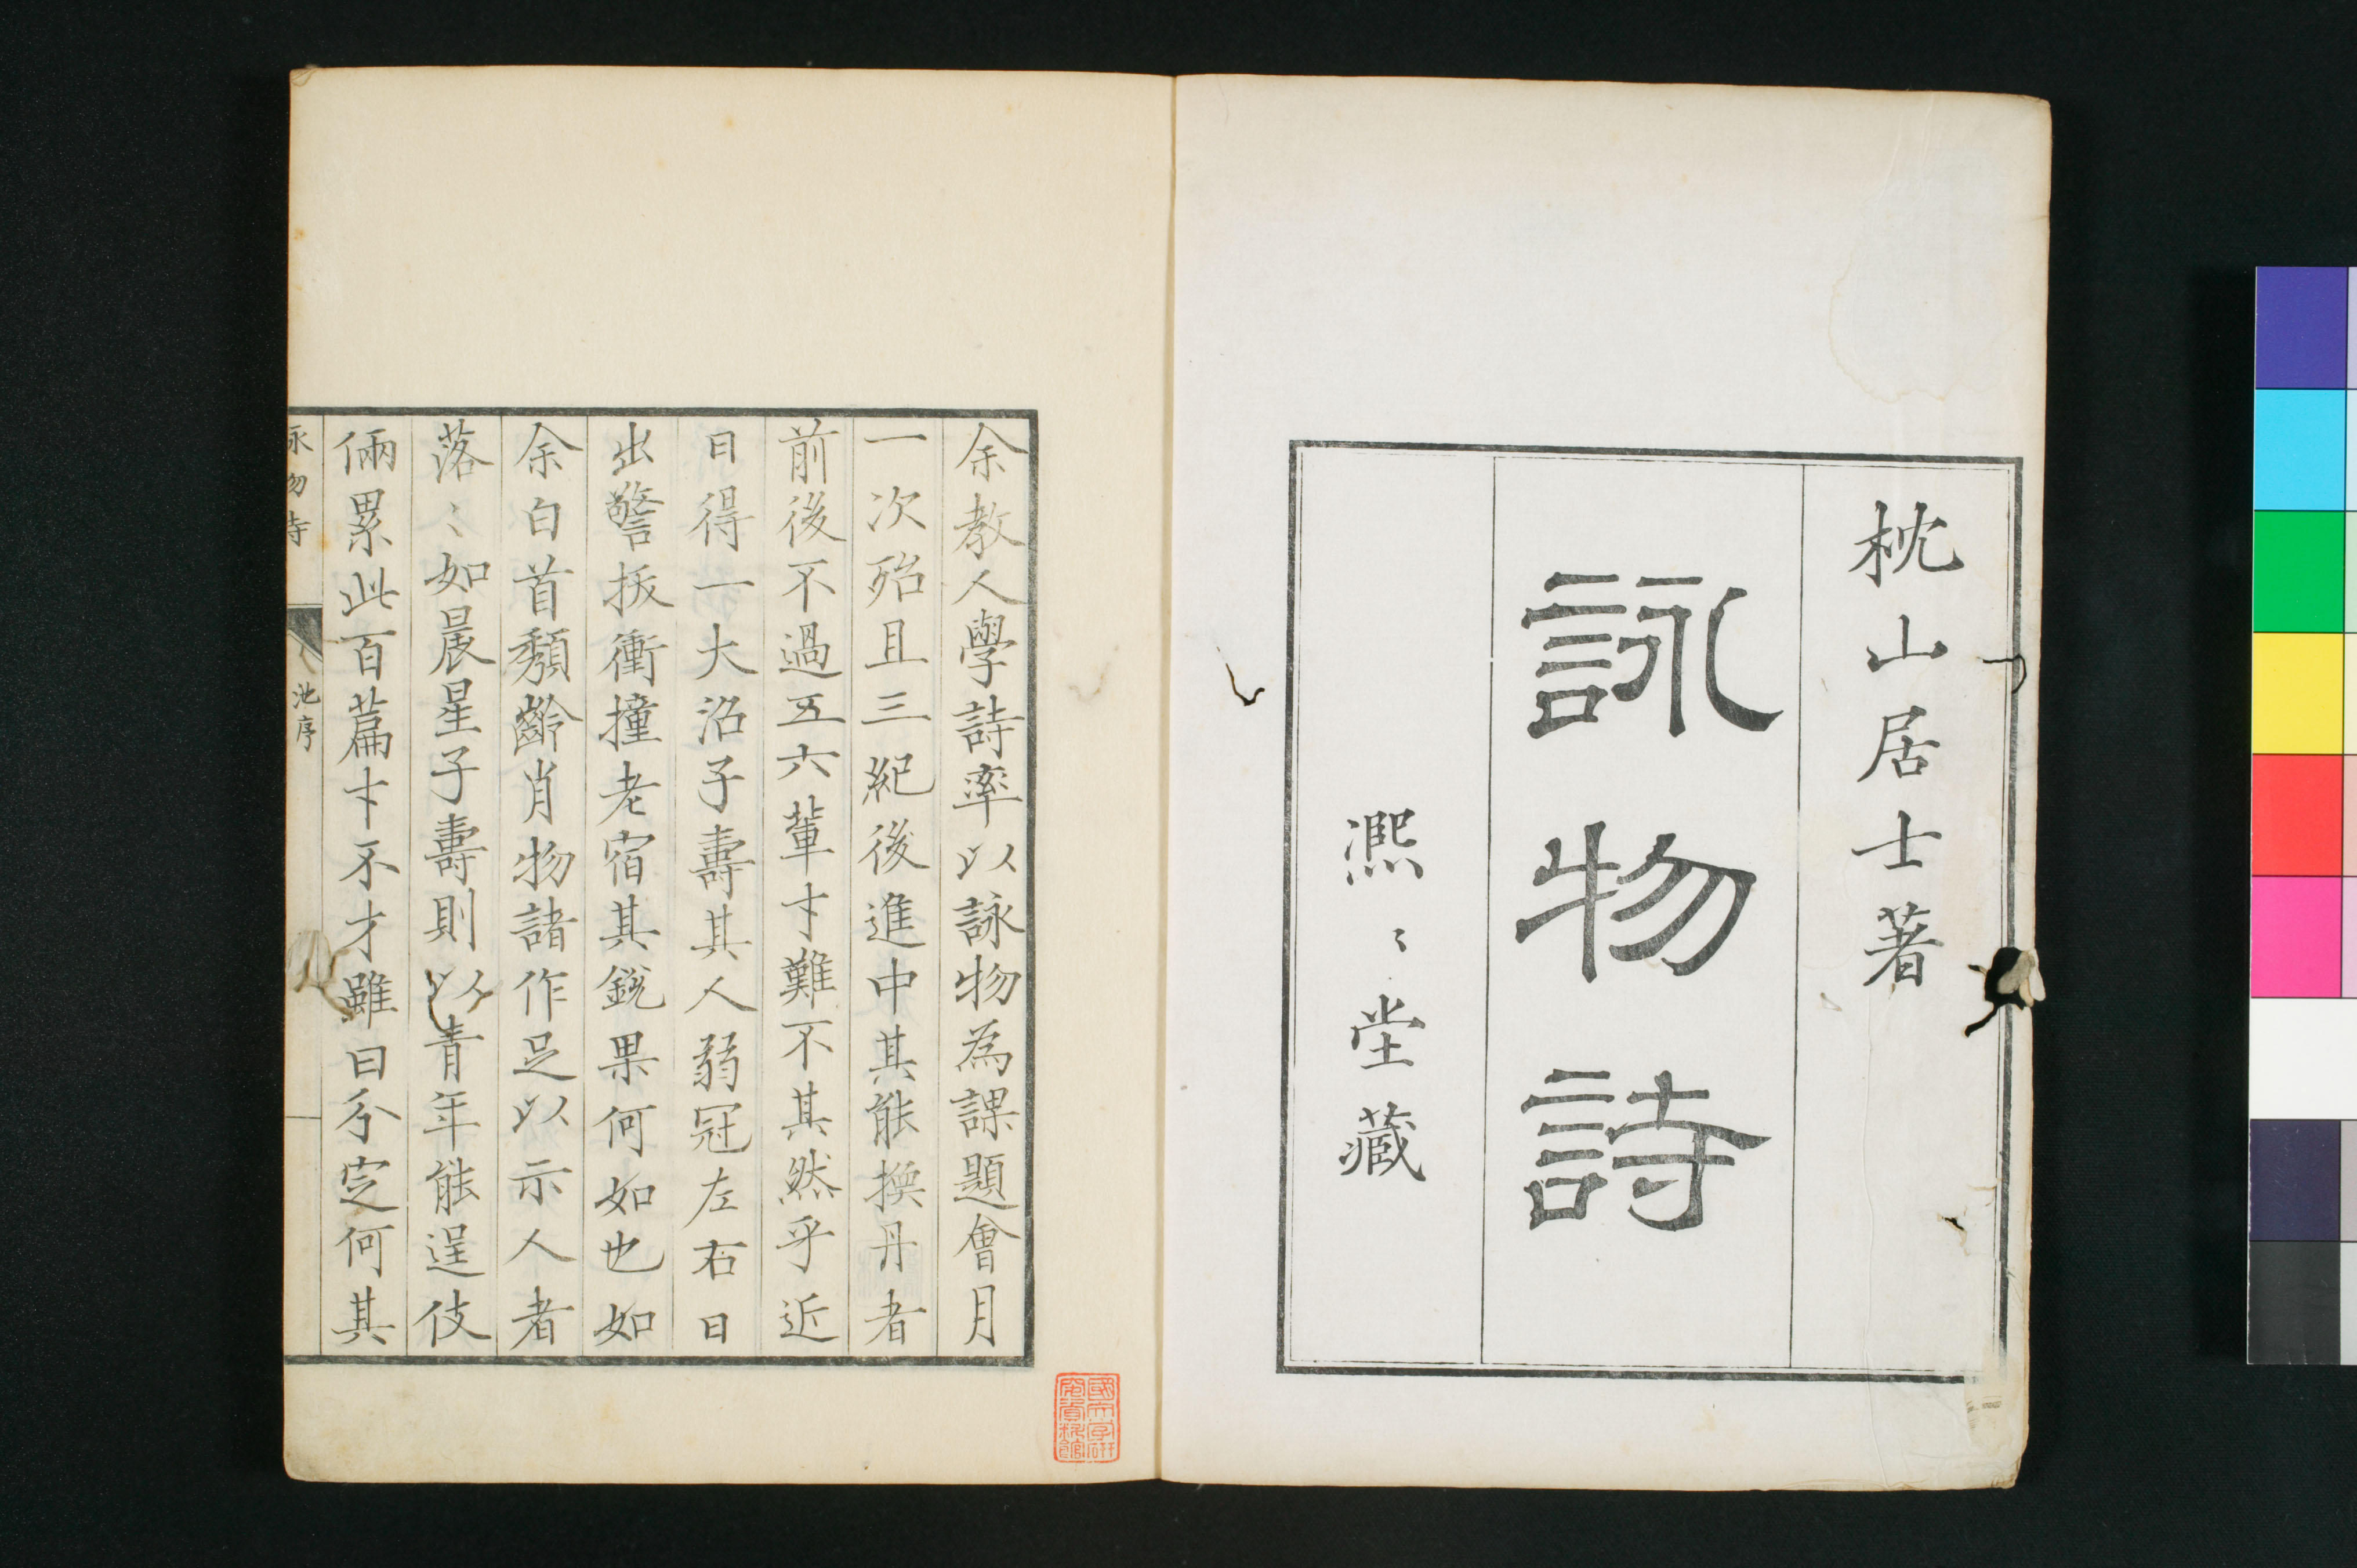 枕山居士著
詠物詩
凞〻堂藏
余教人學詩率以詠物為課題會月
一次殆且三紀後進中其能換丹者
前後不過五六輩才難不其然乎近
日得一大沼子壽其人弱冠左右日
出警拔衝撞老宿其銳果何如也如
余白首頽齡肖物諸作足以示人者
落〻如晨星子壽則以青年能逞伎
倆累此百篇才不才雖曰分定何其
詠物詩
池序